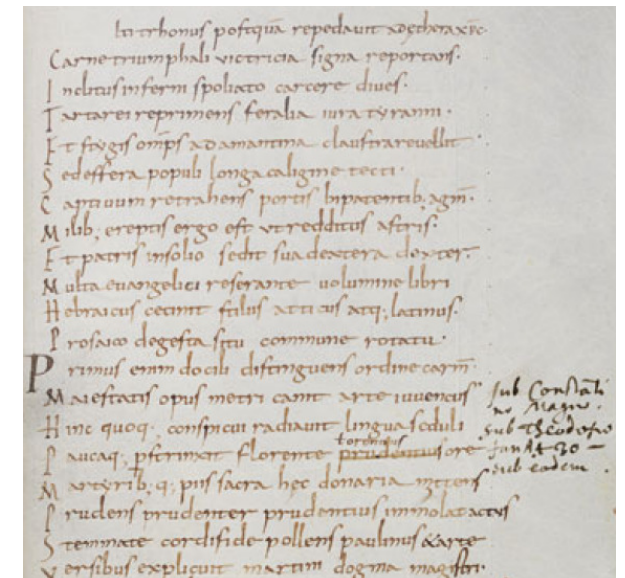 Iti trhonus postquā repedavit
Carne triumphali victricia signa reportans·
Inclitus inferni spoliato carcere dives·
Tartarei reprimens feralia iura tyranni·
Et stygis omps adamantina claustra revellit
Sed effera populi longa caligine tecti·
Captivum retrahens portis bipatentib; agm̄·
Milib; ereptis ergo est ut redditus astris·
Et patris in solio sedit sua dextera dexter·
Multa evangelici reserante volumine libri
Hebraicus cecinit stilus atticus atq; latinus·
Prosaico degesta situ commune rotatu·
Primus enim docili distinguens ordine carm̄·
Maiestatis opus metri canit arte iuvencus
Hinc quoq; conspicui radiavit lingua seduli
Paucaq; pstrinxit florente prudentius ore
Martyrib; q; piis sacra hęc donaria mittens
Prudens prudenter prudentius immolat actus
Stemmate cordi fide pollens paulinus & arte
Versibus explicuit martini dogma magistri·
sub Constāti
no Magno·
sub Theodosio
sub eodem